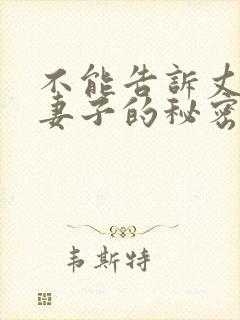 不能告訴丈
妻子的秘密
韦斯特